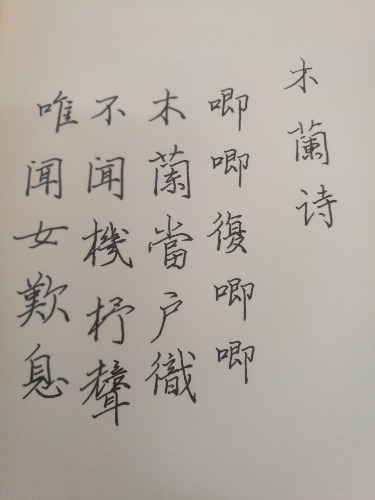 木蘭诗
唧唧復唧唧
木蘭當户織
不闻機杼聲
唯闻女歎息